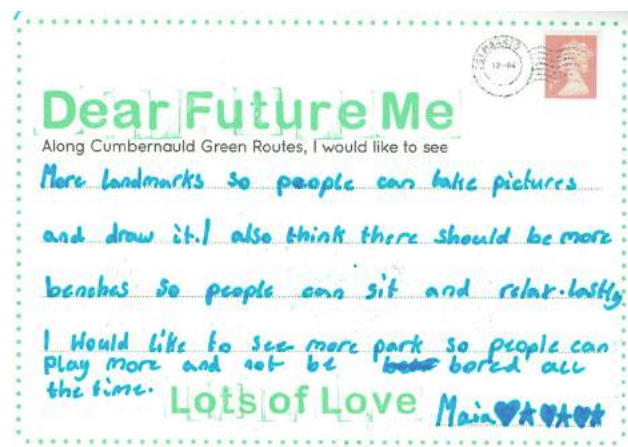 12-04
Dear Future Me
Along Cumbernauld Green Routes, I would like to see
More landmarks so people can take pictures
and draw it. I also think there should be more
benches so people can sit and relax. lastly
I would like to see more park so people can
play more and not be bored all
the time.
Lots of Love
Maia